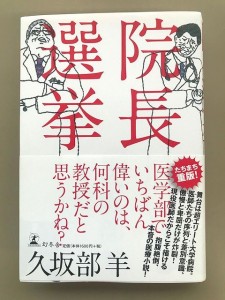 院長
選挙
医学部で
いちばん
偉いのは、
何科の
教授だと
思うかね?
たちまち
重版!
舞台は超エリート大学病院。
医師たちの序列と差別意識、
傲慢と卑屈だけが炸裂!
現役医師だからこそ描ける
抱腹絶倒、
本音の医療小説!
幻冬舎
定価(本体1600円+税)
久坂部 羊